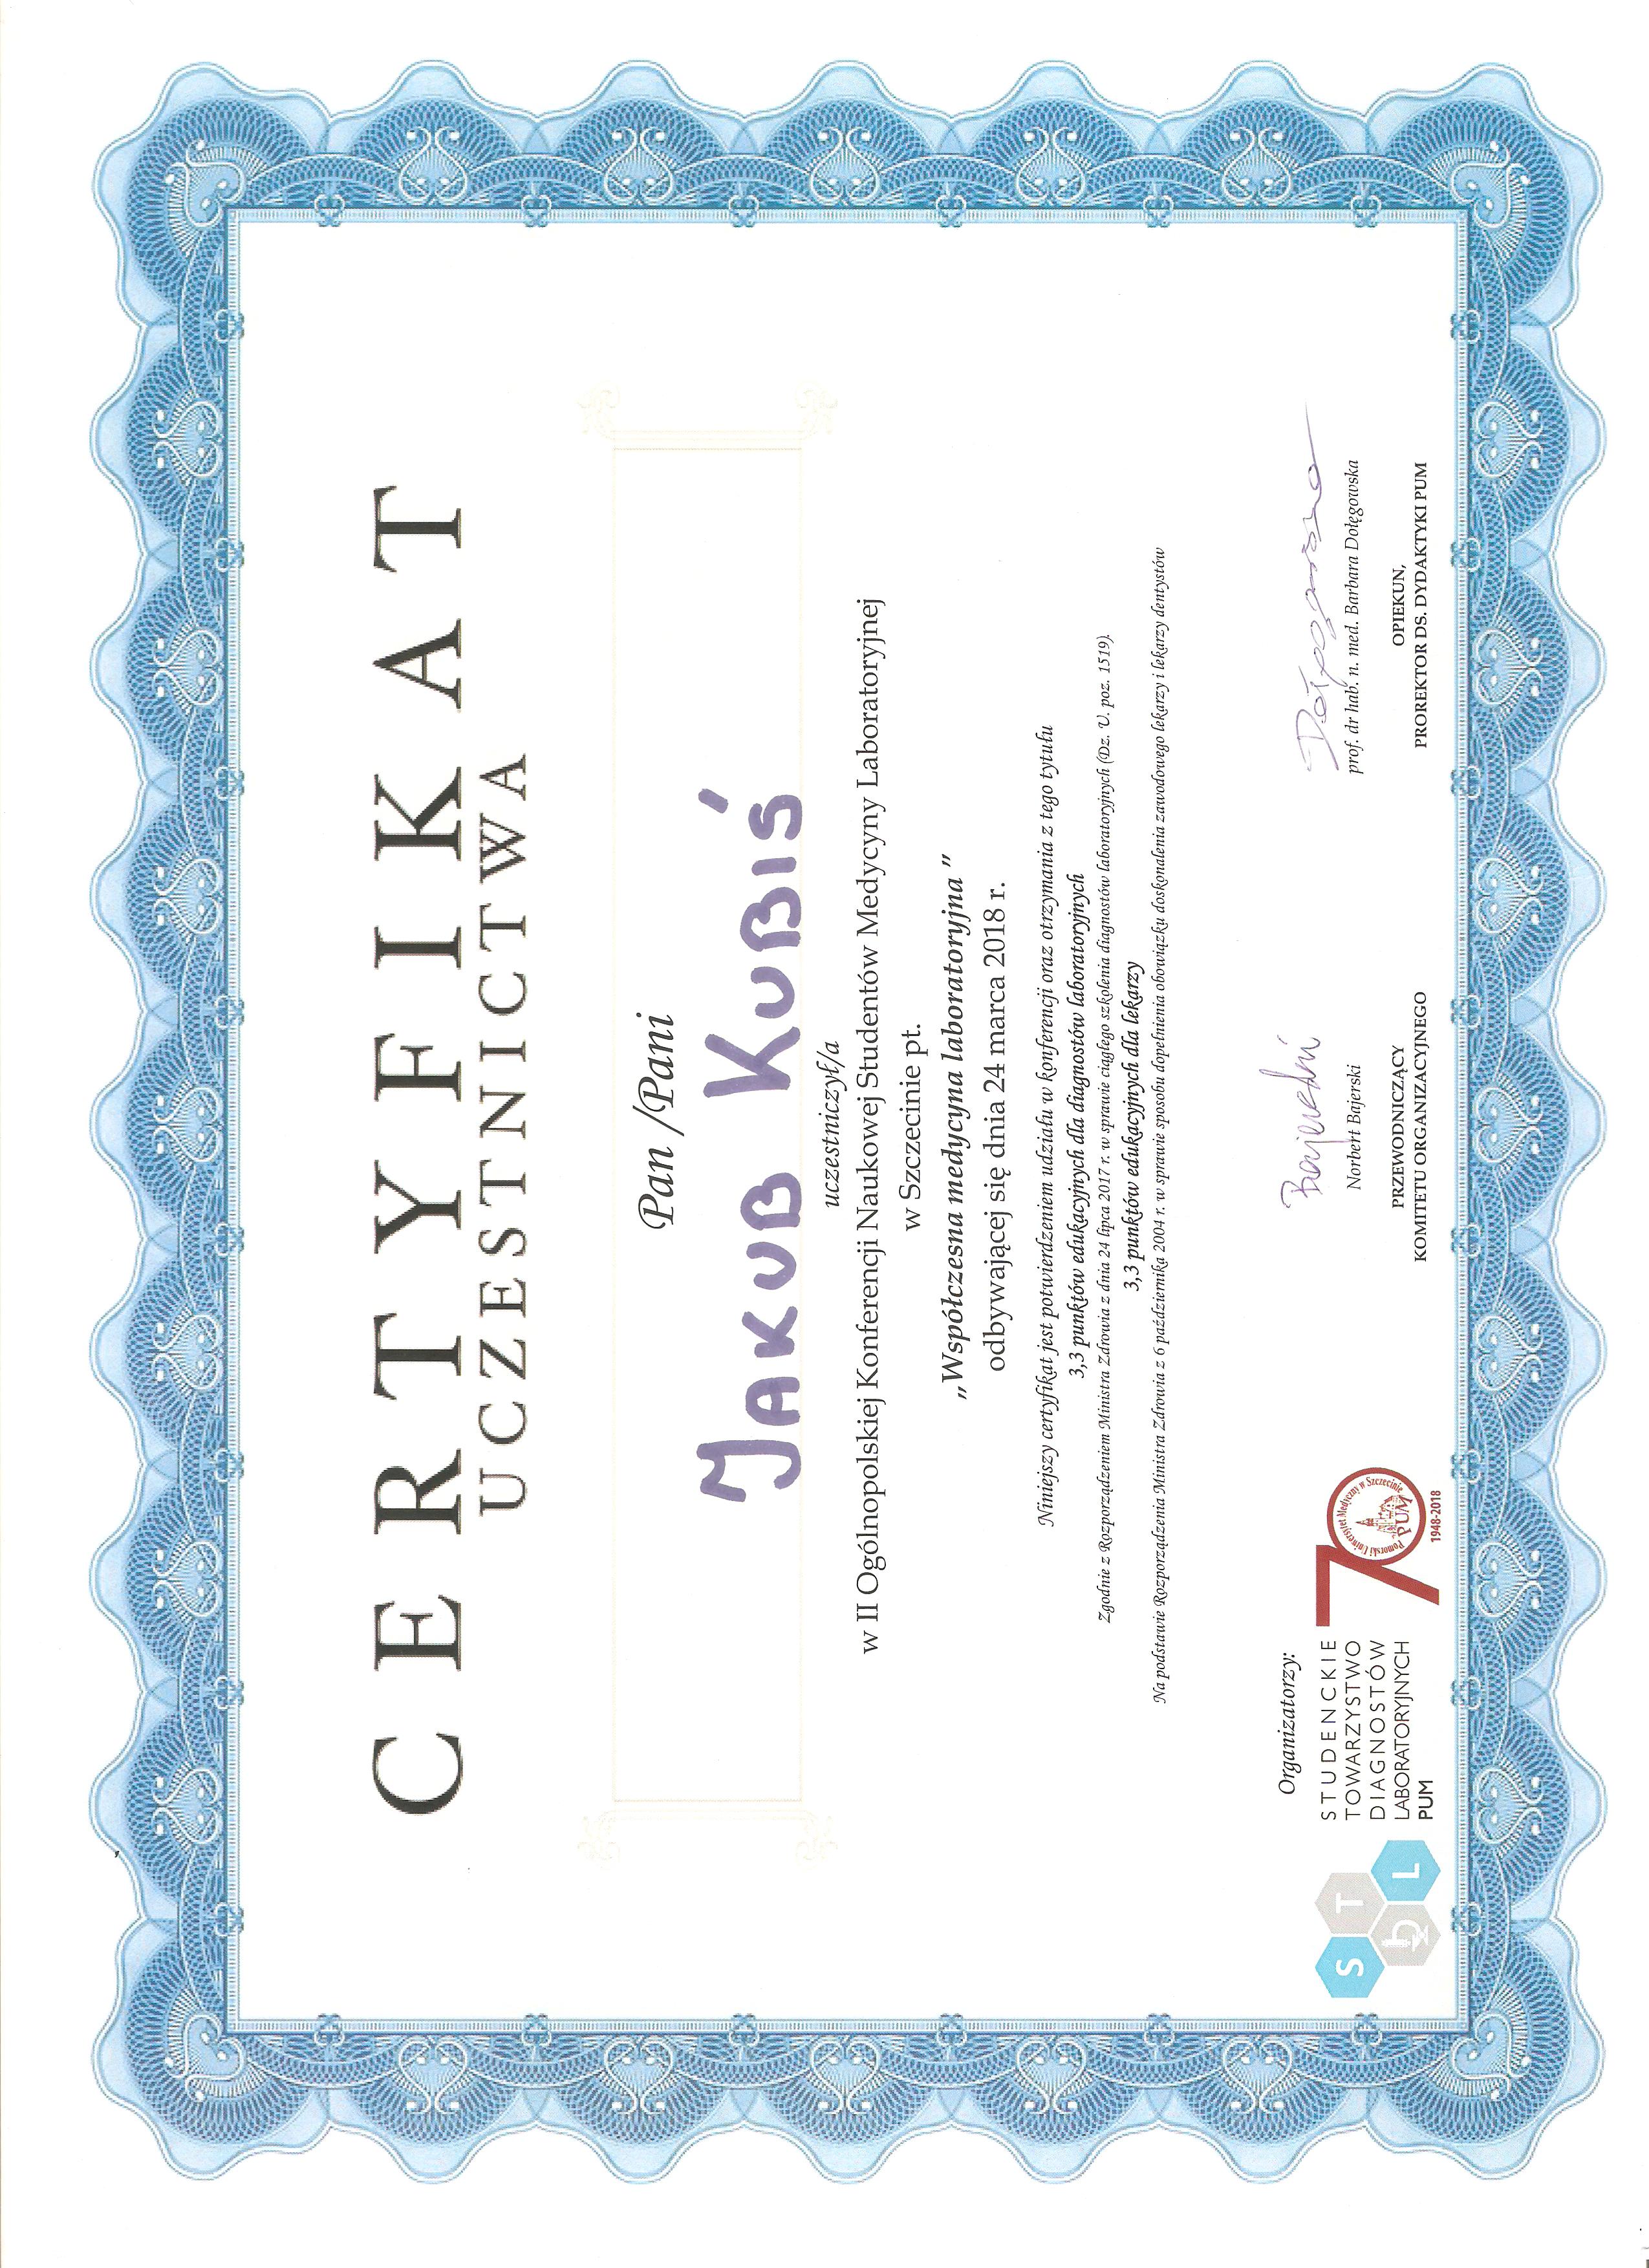 CERTYFIKAT
UCZESTNICTWA
Pan /Pani
JAKUB KUBIŚ
uczestniczył/a
w II Ogólnopolskiej Konferencji Naukowej Studentów Medycyny Laboratoryjnej
w Szczecinie pt.
„Współczesna medycyna laboratoryjna ”
odbywającej się dnia 24 marca 2018 r.
Niniejszy certyfikat jest potwierdzeniem udziału w konferencji oraz otrzymania z tego tytułu
3,3 punktów edukacyjnych dla diagnostów laboratoryjnych
Zgodnie z Rozporządzeniem Ministra Zdrowia z dnia 24 lipca 2017 r. w sprawie ciągłego szkolenia diagnostów laboratoryjnych (Dz. U. poz. 1519).
3,3 punktów edukacyjnych dla lekarzy
Na podstawie Rozporządzenia Ministra Zdrowia z 6 października 2004 r. w sprawie sposobu dopełnienia obowiązku doskonalenia zawodowego lekarzy i lekarzy dentystów
Organizatorzy:
S T
L
STUDENCKIE
TOWARZYSTWO
DIAGNOSTÓW
LABORATORYJNYCH
PUM
70
Pomorski Uniwersytet Medyczny w Szczecinie
PUM
1948-2018
Bajerski
Norbert Bajerski
PRZEWODNICZĄCY
KOMITETU ORGANIZACYJNEGO
Dołęgowska
prof. dr hab. n. med. Barbara Dołęgowska
OPIEKUN,
PROREKTOR DS. DYDAKTYKI PUM